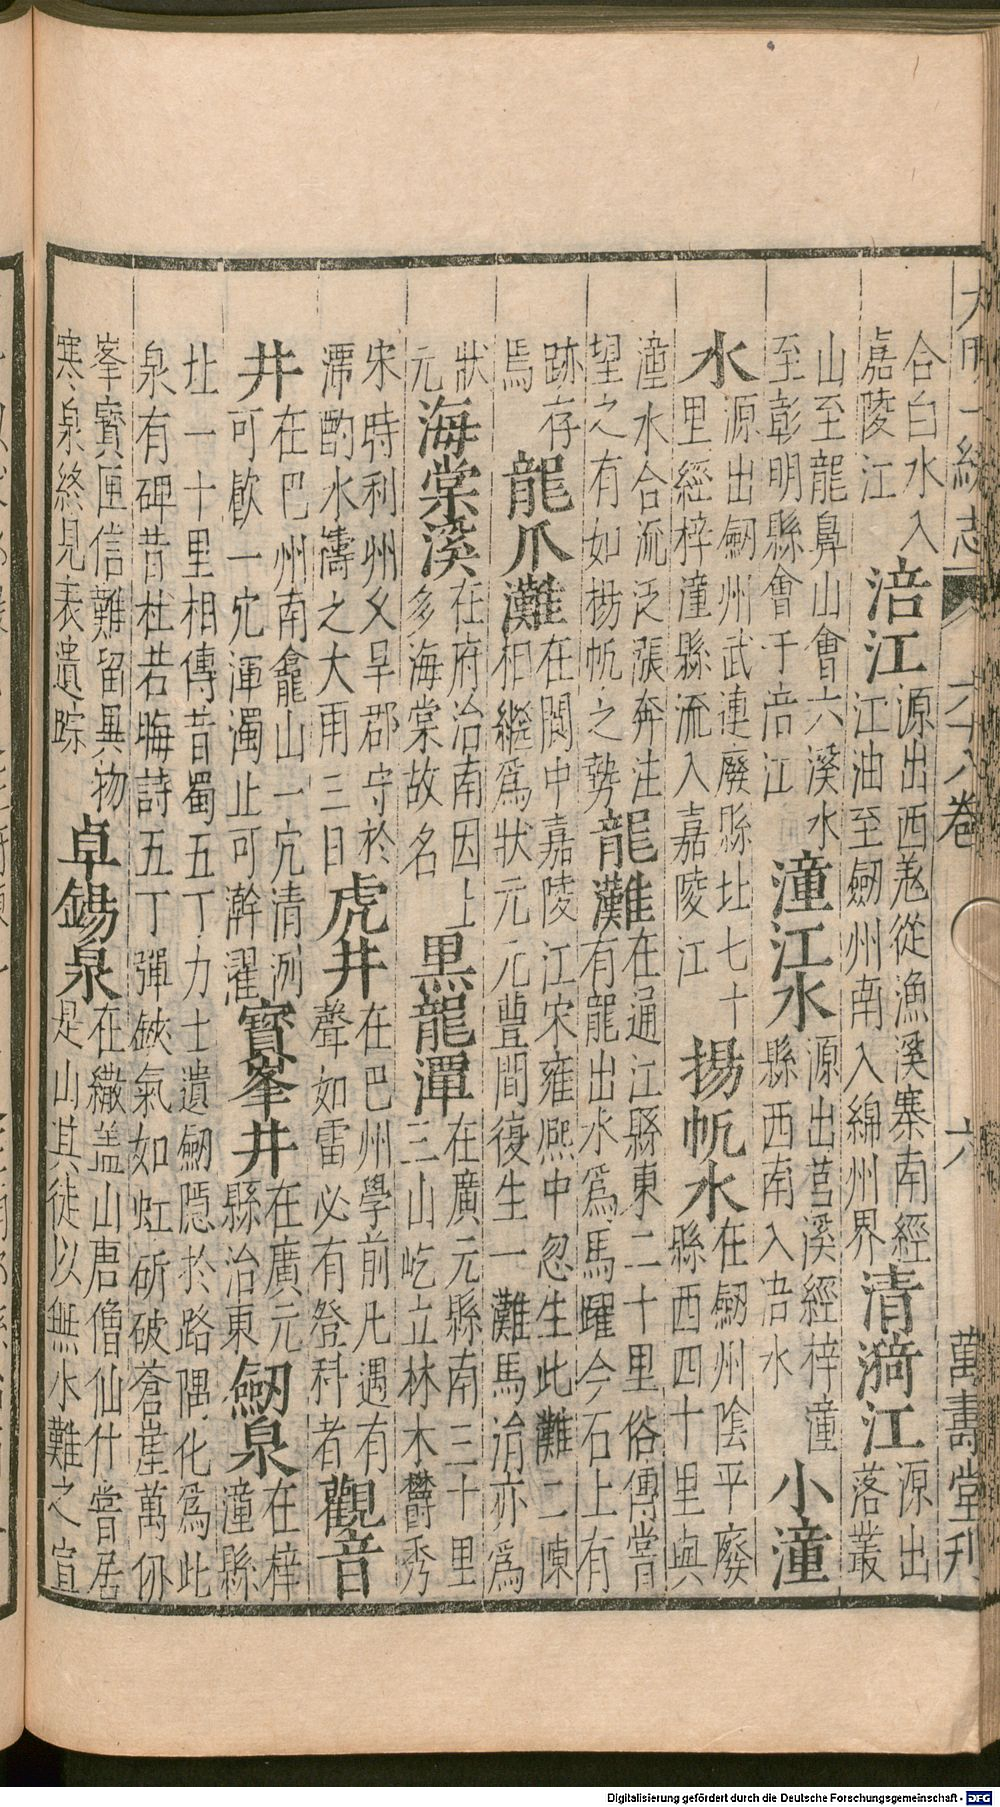 大明一統志 六十八卷 六 萬壽堂刋
合白水入
嘉陵江
涪江
源出西羌從漁溪寨南經
江油至劒州南入綿州界
清漪江
源出
落叢
山至龍鼻山會六溪水
至彰明縣會于涪江
潼江水
源出莒溪經梓潼
縣西南入涪水
小潼
水
源出劒州武連廢縣址七十
里經梓潼縣流入嘉陵江
揚帆水
在劒州陰平廢
縣西四十里與
潼水合流泛漲奔注
望之有如楊帆之勢
龍灘
在通江縣東二十里俗傳嘗
有龍出水爲馬躍今石上有
跡存
馬
龍爪灘
在閬中嘉陵江宋雍熈中忽生此灘二陳
相繼爲狀元元豊間復生一灘馬涓亦爲
狀
元
海棠溪
在府治南因上
多海棠故名
黒龍潭
在廣元縣南三十里
三山屹立林木欝秀
宋時利州久旱郡守於
潭酌水禱之大雨三日
虎井
在巴州學前凡遇有
聲如雷必有登科者
觀音
井
在巴州南龕山一穴清冽
可歠一穴渾濁止可澣濯
寳峯井
在廣元
縣治東
劒泉
在梓
潼縣
址一十里相傳昔蜀五丁力士遺劒隠於路隅化爲此
泉有碑昔杜若晦詩五丁彈鋏氣如虹斫破蒼崖萬仭
峯寳匣信難留異物
寒泉終見表遺踪
卓錫泉
在繖盖山唐僧仙什嘗居
是山其徒以無水難之宣
Digitalisierung gefördert durch die Deutsche Forschungsgemeinschaft - DFG